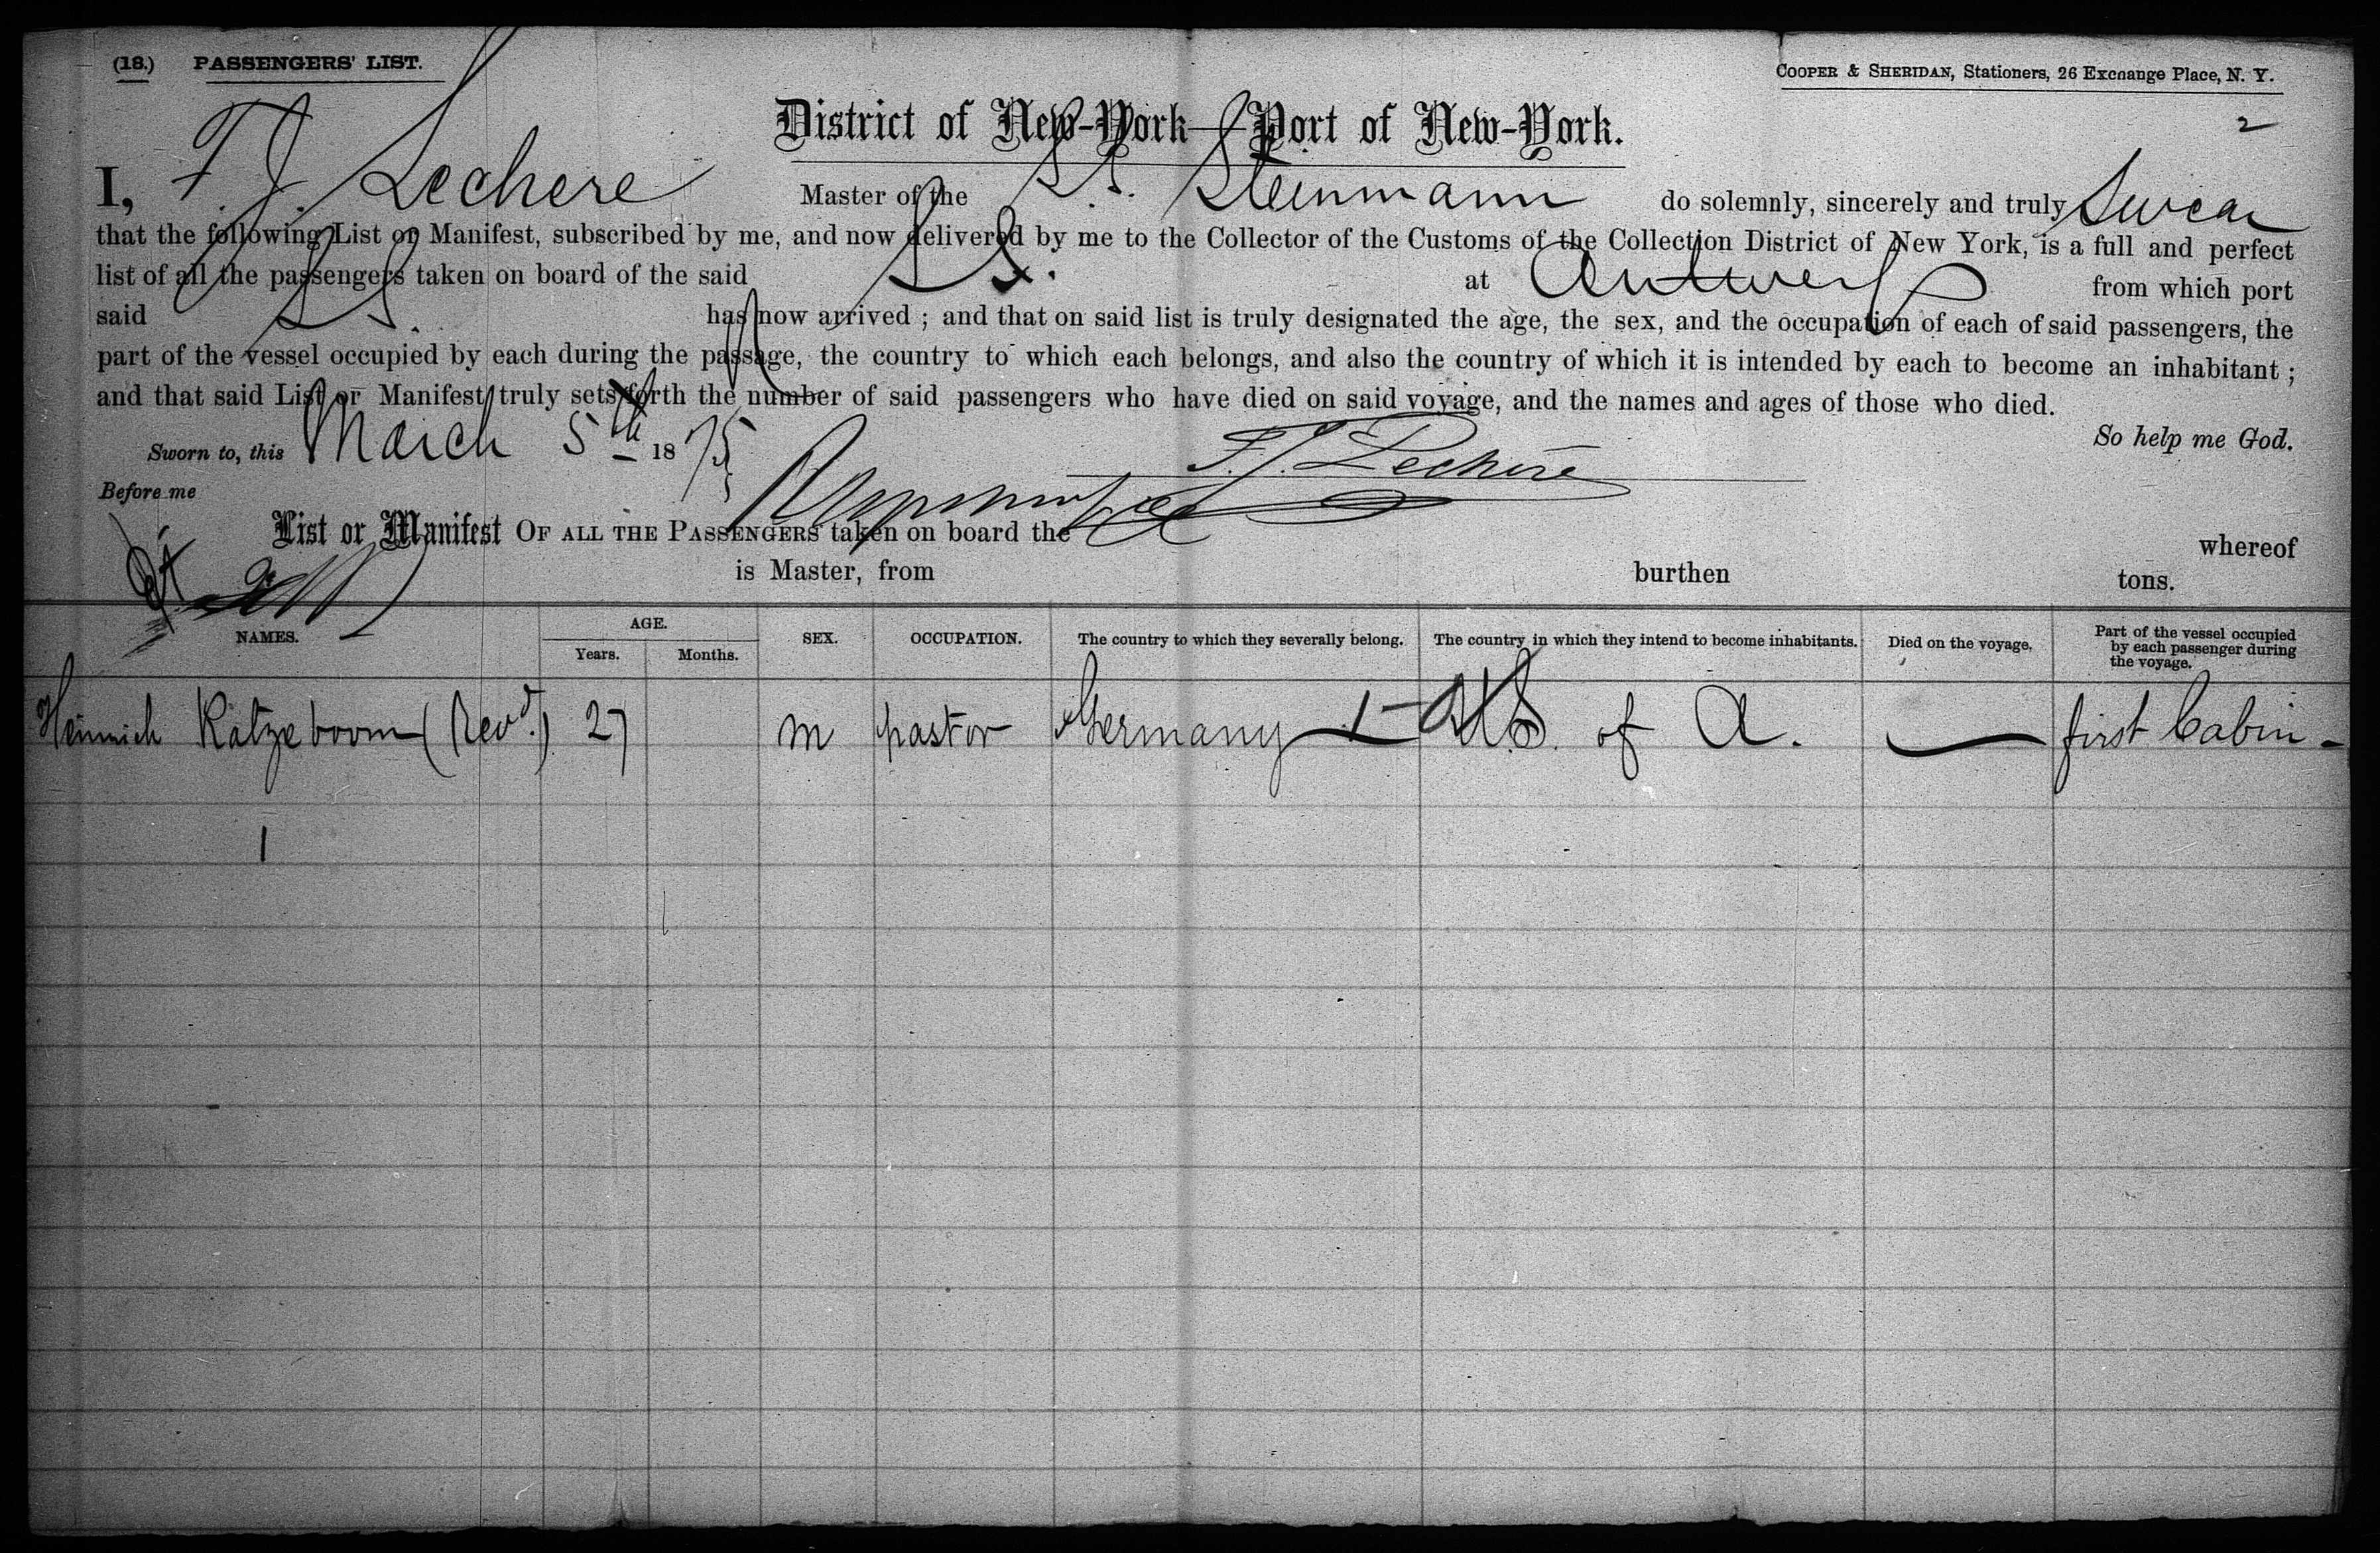 (18.) PASSENGERS' LIST.
COOPER & SHERIDAN, Stationers, 26 Exchange Place, N. Y.
2
District of New-York—Port of New-York.
I, F. J. Lechere Master of the S.S. Steinmann do solemnly, sincerely and truly Swear
that the following List or Manifest, subscribed by me, and now delivered by me to the Collector of the Customs of the Collection District of New York, is a full and perfect
list of all the passengers taken on board of the said S.S. at Antwerp from which port
said S.S. has now arrived ; and that on said list is truly designated the age, the sex, and the occupation of each of said passengers, the
part of the vessel occupied by each during the passage, the country to which each belongs, and also the country of which it is intended by each to become an inhabitant ;
and that said List or Manifest truly sets forth the number of said passengers who have died on said voyage, and the names and ages of those who died.
So help me God.
Sworn to, this March 5th 1875 F. J. Lechere
Before me
List or Manifest OF ALL THE PASSENGERS taken on board the whereof
is Master, from burthen tons.
NAMES. AGE. Years. Months. SEX. OCCUPATION. The country to which they severally belong. The country in which they intend to become inhabitants. Died on the voyage. Part of the vessel occupied by each passenger during the voyage.
Heinrich Katzeboom (Revd.) 27 m pastor Germany U.S. of A. — first Cabin -
1